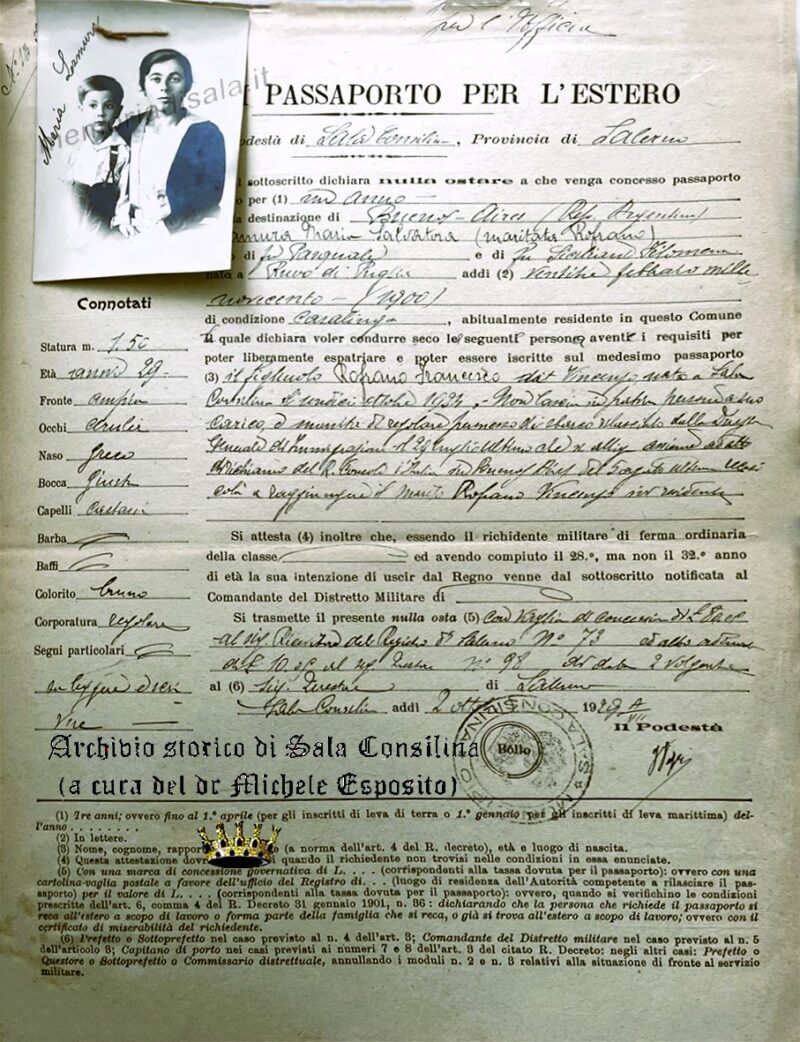 per l'Officio
N. 18
Maria Lamura
memoriadisala.it
PASSAPORTO PER L'ESTERO
Podestà di Sala Consilina, Provincia di Salerno
l sottoscritto dichiara nulla ostare a che venga concesso passaporto
o per (1) un anno
a destinazione di Buenos-Aires (Rep. Argentina)
Lamura Maria Salvatora (maritata Rofrano)
o di fu Pasquale e di fu Siciliano Filomena
nata a Ruvo di Puglia addì (2) ventitre febbraio mille
novecento - (1900)
di condizione casalinga, abitualmente residente in questo Comune
il quale dichiara voler condurre seco le seguenti persone aventi i requisiti per
poter liberamente espatriare e poter essere iscritte sul medesimo passaporto
(3) il figliuolo Rofrano Francesco di Vincenzo nato a Sala
Consilina - Non lascia in patria persone a suo
carico, è munita di regolare permesso di sbarco rilasciato dalla Direz.
Generale di Immigrazione il 24 luglio ultimo
R. Console d'Italia in Buenos Aires del
colà a raggiungere il marito Rofrano Vincenzo ivi residente
Connotati
Statura m. 1.50
Età anni 29
Fronte ampia
Occhi cerulei
Naso greco
Bocca giusta
Capelli castani
Barba
Baffi
Colorito bruno
Corporatura regolare
Segni particolari
sa leggere e scri
vere
Si attesta (4) inoltre che, essendo il richidente militare di ferma ordinaria
della classe ed avendo compiuto il 28.º, ma non il 32.º anno
di età la sua intenzione di uscir dal Regno venne dal sottoscritto notificata al
Comandante del Distretto Militare di
Si trasmette il presente nulla osta (5) con vaglia di concessione di L.
al sig. Ricevitore del Registro di Salerno Nº 73 ed altro
di L 10.50 al sig. Questore nº 98 di data 2 volgente
al (6) Sig. Questore di Salerno
Sala Consilina addì 2 1929 A
Il Podestà
Bollo
Archivio storico di Sala Consilina
(a cura del dr Michele Esposito)
(1) Tre anni; ovvero fino al 1.º aprile (per gli inscritti di leva di terra o 1.º gennaio per gli inscritti di leva marittima) del-
l'anno . . . . . . . .
(2) In lettere.
(3) Nome, cognome, rapporto (a norma dell'art. 4 del R. decreto), età e luogo di nascita.
(4) Questa attestazione quando il richiedente non trovisi nelle condizioni in essa enunciate.
(5) Con una marca di concessione governativa di L. . . . (corrispondenti alla tassa dovuta per il passaporto): ovvero con una
cartolina-vaglia postale a favore dell'ufficio del Registro di. . . (luogo di residenza dell'Autorità competente a rilasciare il pas-
saporto) per il valore di L. . . . (corrispondenti alla tassa dovuta per il passaporto): ovvero, quando si verifichino le condizioni
prescritte dall'art. 6, comma 4 del R. Decreto 31 gennaio 1901, n. 36: dichiarando che la persona che richiede il passaporto si
reca all'estero a scopo di lavoro o forma parte della famiglia che si reca, o già si trova all'estero a scopo di lavoro; ovvero con il
certificato di miserabilità del richiedente.
(6) Prefetto o Sottoprefetto nel caso previsto al n. 4 dell'art. 3; Comandante del Distretto militare nel caso previsto al n. 5
dell'articolo 3; Capitano di porto nei casi previsti ai numeri 7 e 8 dell'art. 3 del citato R. Decreto: negli altri casi: Prefetto o
Questore o Sottoprefetto o Commissario distrettuale, annullando i moduli n. 2 e n. 3 relativi alla situazione di fronte al servizio
militare.